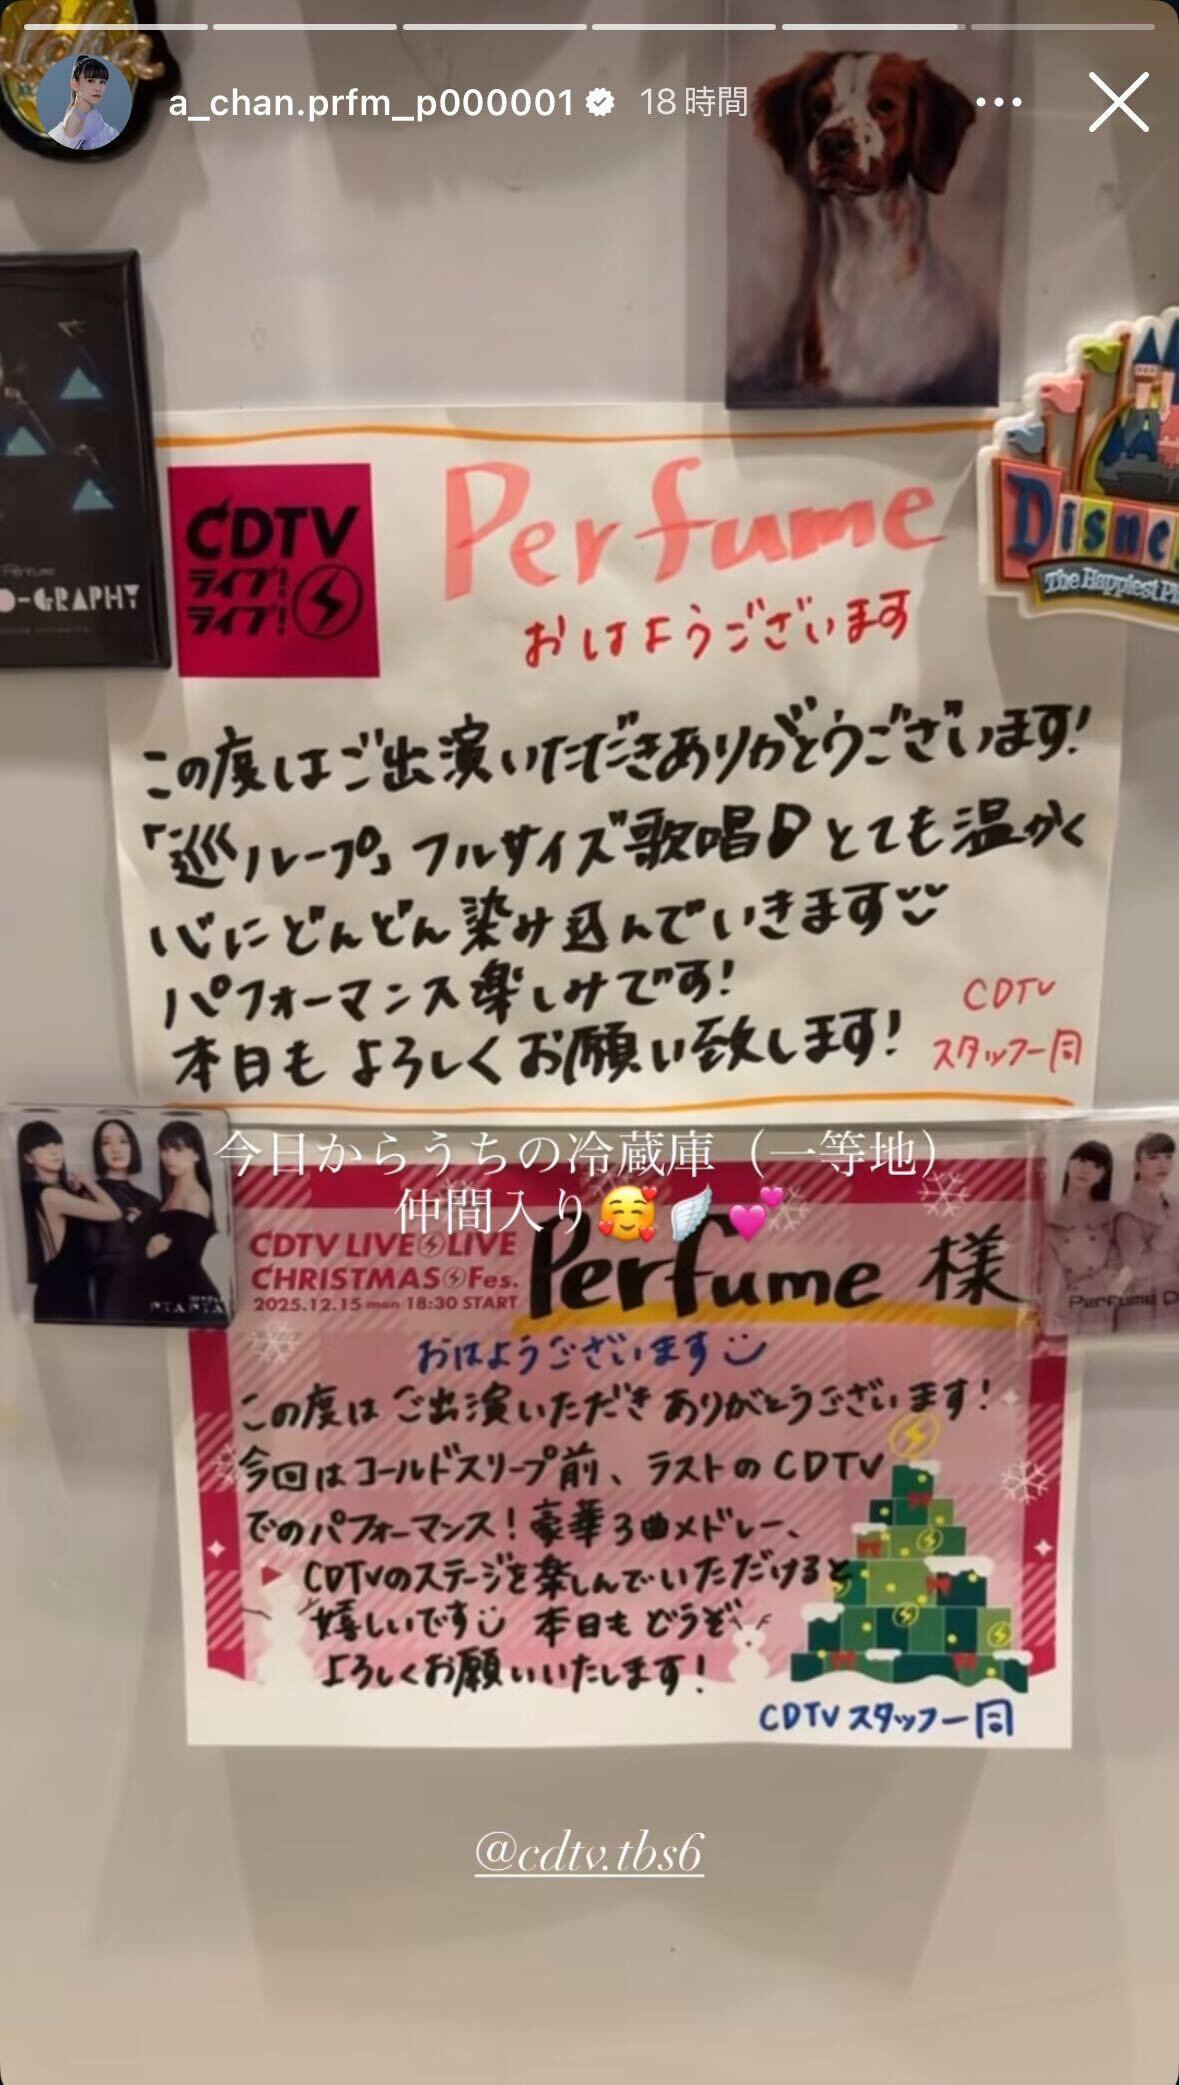 a_chan.prfm_p000001 18時間
Perfume
O-GRAPHY
Disne
The Happiest Pl
CDTV
ライブ!
ライブ!
Perfume
おはようございます
この度はご出演いただきありがとうございます!
「巡ループ」フルサイズ歌唱♪とても温かく
心にどんどん染み込んでいきます
パフォーマンス楽しみです!
本日もよろしくお願い致します!
CDTV
スタッフ一同
今日からうちの冷蔵庫（一等地）
仲間入り🥰🪽💕
CDTV LIVE LIVE
CHRISTMAS Fes.
2025.12.15 mon 18:30 START
Perfume 様
おはようございます
この度はご出演いただきありがとうございます!
今回はコールドスリープ前、ラストのCDTV
でのパフォーマンス!豪華3曲メドレー、
CDTVのステージを楽しんでいただけると
嬉しいです 本日もどうぞ
よろしくお願いいたします!
CDTVスタッフ一同
Perfume
@cdtv.tbs6